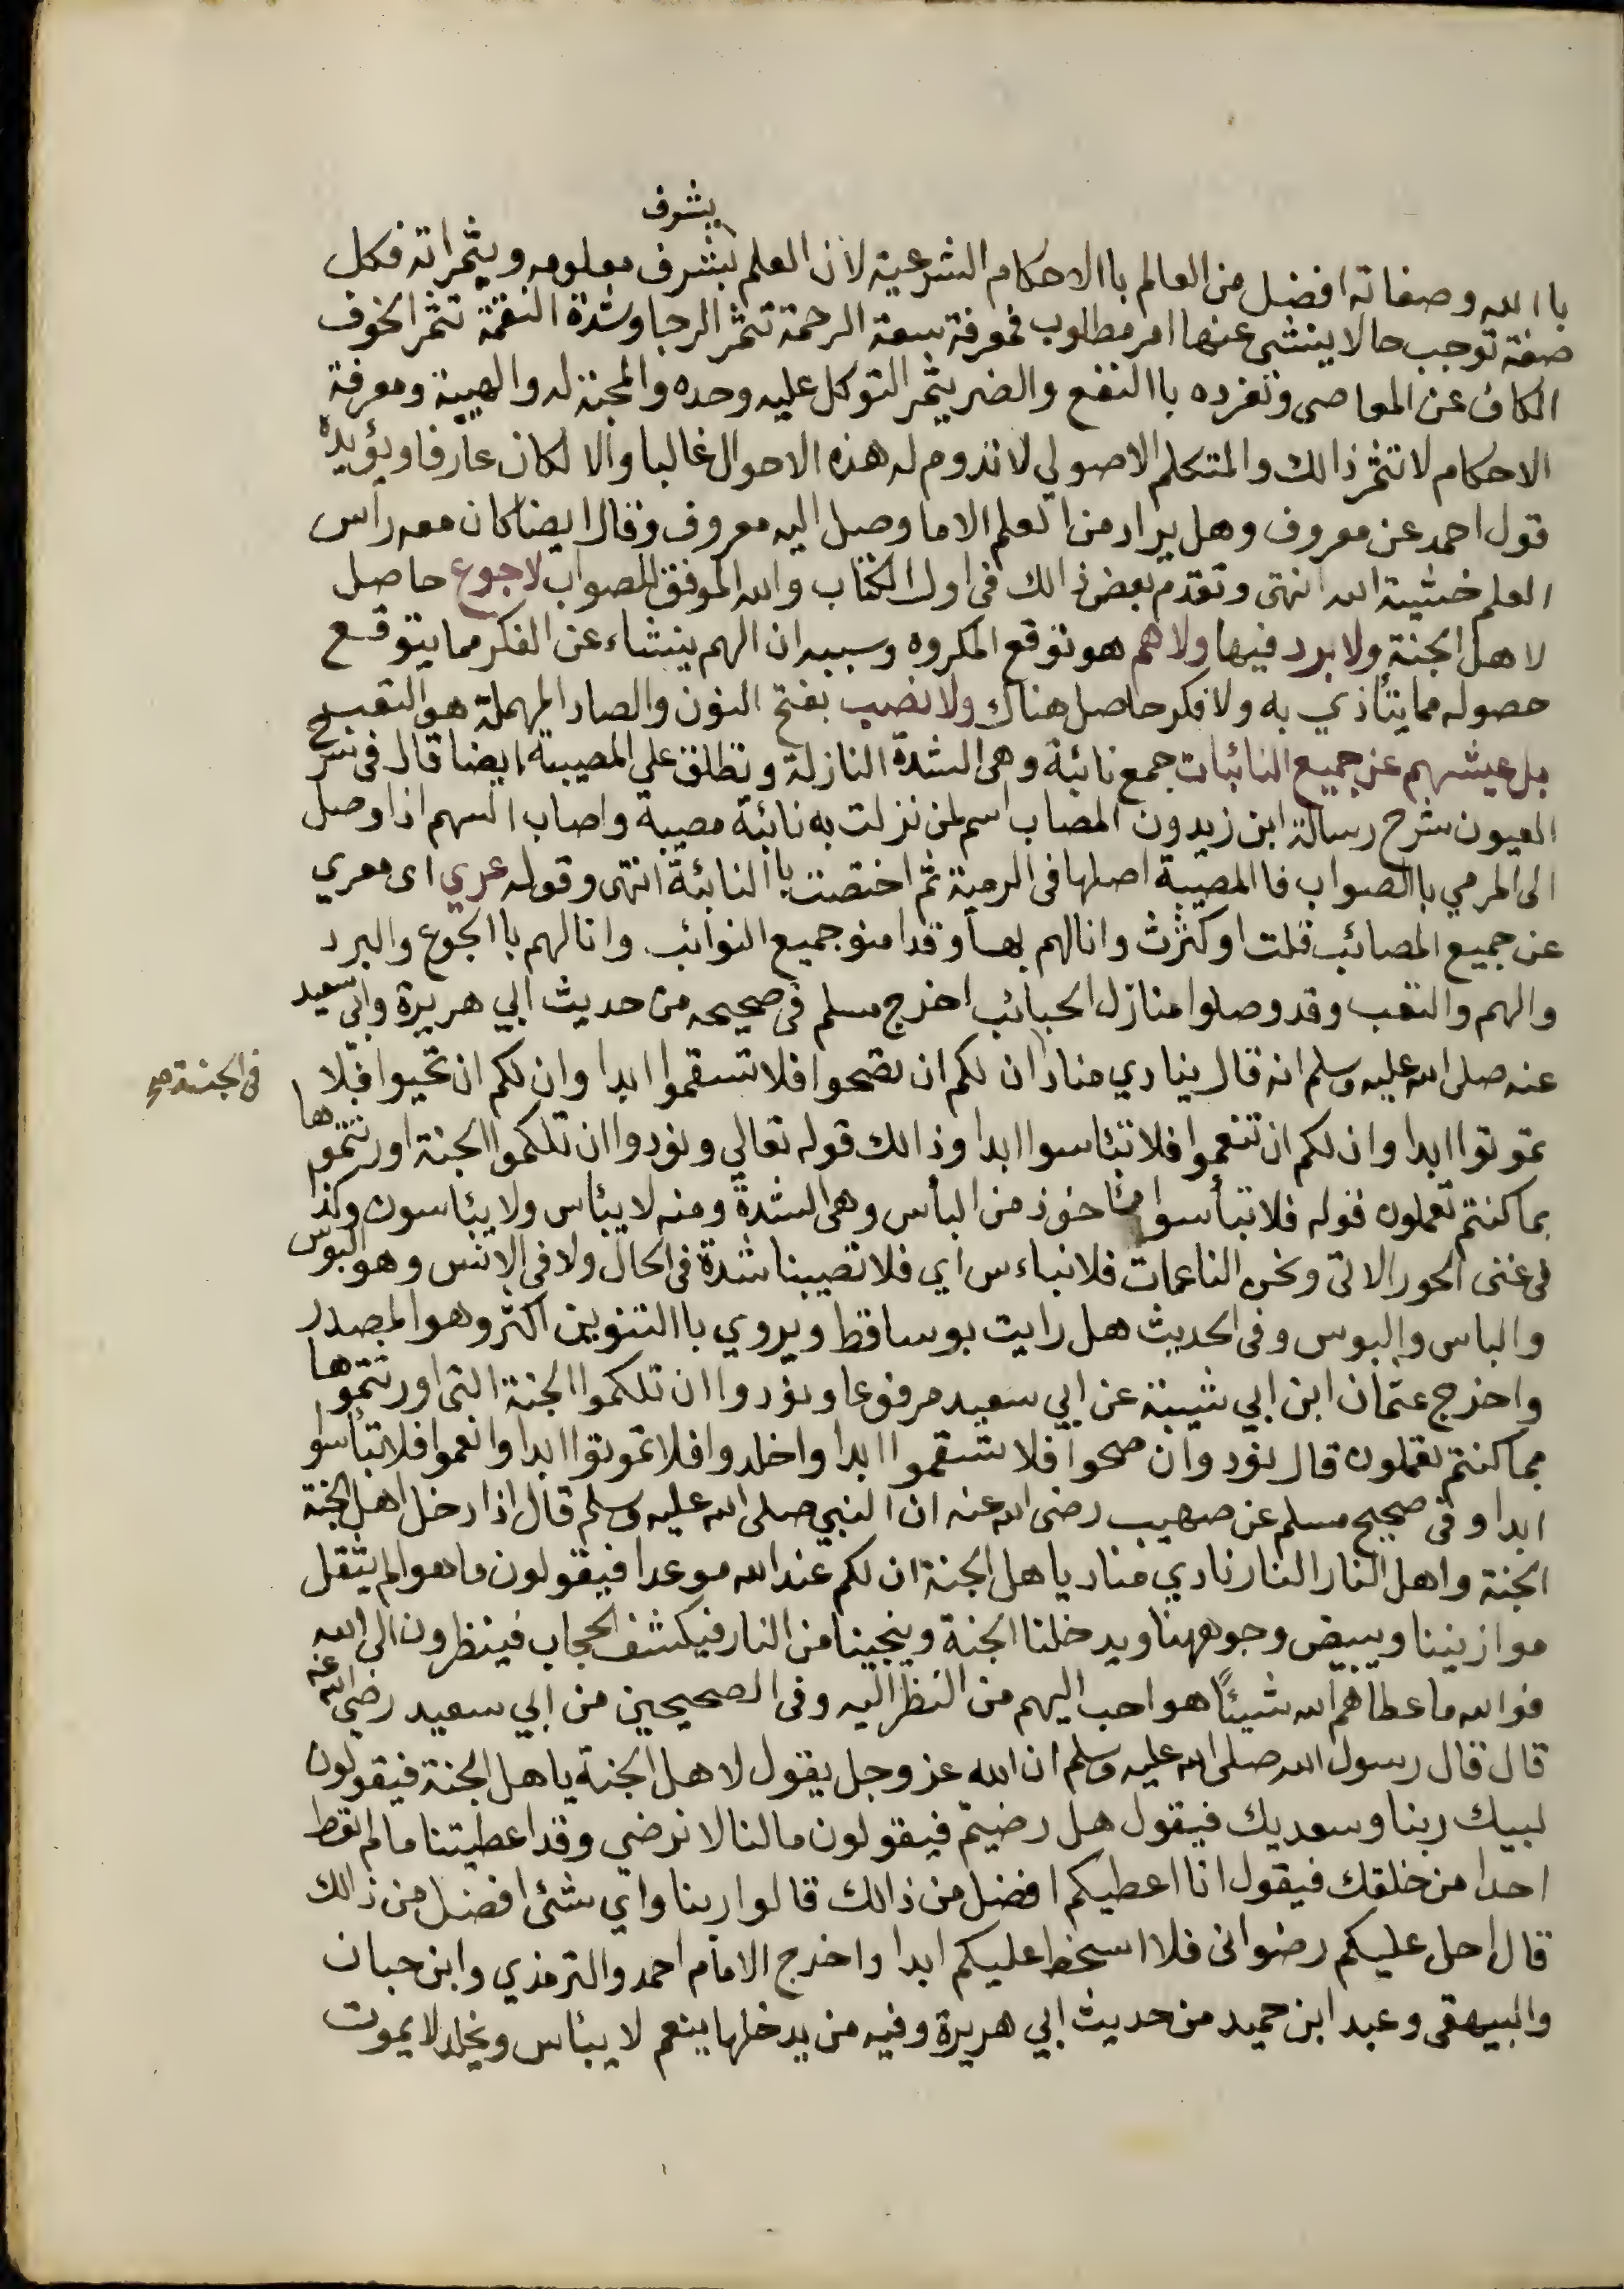 يشرف
باالله وصفاته افضل من العالم باالاحكام الشرعية لأن العلم بشرف معلومه ويثمراته فكل
صفة توجب حالا ينشى عنها امر مطلوب فمعرفة سعة الرحمة تثمر الرجا وشدة النقمة تثمر الخوف
الكاف عن المعاصى وتفرده باالنفع والضر يثمر التوكل عليه وحده والمحبة له والهيبة ومعرفة
الاحكام لا تثمر ذالك والمتكلم الاصولي لا تدوم له هذه الاحوال غالبا والا لكان عارفا ويؤيده
قول احمد عن معروف وهل يراد من العلم الا ما وصل اليه معروف وقال ايضا كان معه رأس
العلم خشية الله انتهى وتقدم بعض ذالك فى اول الكتاب والله الموفق للصواب لا جوع حاصل
لاهل الجنة ولا برد فيها ولا هم هو توقع المكروه وسببه ان الهم ينشاء عن الفكر مما يتوقع
حصوله مما يتأذي به ولا فكر حاصل هناك ولا نصب بفتح النون والصاد المهملة هو التعب
بل عيشهم عن جميع النائبات جمع نائبة وهى الشدة النازلة وتطلق على المصيبة ايضا قال فى سرح
العيون شرح رسالة ابن زيدون المصاب اسم لمن نزلت به نائبة مصيبة واصاب السهم اذا وصل
الى المرمي باالصواب فاالمصيبة اصلها فى الرمية ثم اختصت باالنائبة انتهى وقوله عري اى معري
عن جميع المصائب قلت اوكثرت وانالهم بها وقد امنو جميع النوائب وانالهم باالجوع والبرد
والهم والتعب وقد وصلوا منازل الحبائب اخرج مسلم فى صحيحه من حديث ابي هريرة وابي سعيد
عنه صلى الله عليه وسلم انه قال ينادي مناد ان لكم ان تصحوا فلا تسقموا ابدا وان لكم ان تحيوا فلا
فى الجنة صح
تموتوا ابدا وان لكم ان تنعموا فلا تبئاسوا ابدا وذالك قوله تعالي ونودوا ان تلكموا الجنة اورثتموها
بما كنتم تعملون قوله فلا تبأسوا مئاخوذ من البأس وهى الشدة ومنه لا يبئاس ولا يبئاسون وكذا
فى غنى الحور الاتى ونحن الناعمات فلا نباءس اي فلا تصيبنا شدة فى الحال ولا فى الانس وهو البوس
والباس والبوس وفى الحديث هل رايت بوسا قط ويروي باالتنوين اكثر وهو المصدر
واخرج عثمان ابن ابي شيبة عن ابي سعيد مرفوعا ونودوا ان تلكموا الجنة التى اورثتموها
بما كنتم تعملون قال نودوان صحوا فلا تسقموا ابدا واخلدوا فلا تموتوا ابدا وانعموا فلا تبأسوا
ابدا وفى صحيح مسلم عن صهيب رضى الله عنه ان النبي صلى الله عليه وسلم قال اذا دخل اهل الجنة
الجنة واهل النار النار نادي مناد ياهل الجنة ان لكم عند الله موعدا فيقولون ما هو الم يثقل
موازيننا ويبيض وجوههنا ويدخلنا الجنة وينجينا من النار فيكشف الحجاب فينظرون الى الله
فوالله ما عطاهم الله شيئًا هو احب اليهم من النظر اليه وفى الصحيحين من ابي سعيد رضي الله عنه
قال قال رسول الله صلى الله عليه وسلم ان الله عز وجل يقول لاهل الجنة ياهل الجنة فيقولون
لبيك ربنا وسعديك فيقول هل رضيتم فيقولون مالنا لا نرضي وقد اعطيتنا مالم تعط
احدا من خلقك فيقول انا اعطيكم افضل من ذالك قالوا ربنا واي شئى افضل من ذالك
قال احل عليكم رضوانى فلا اسخط عليكم ابدا واخرج الامام احمد والترمذي وابن حبان
والبيهقى وعبد ابن حميد من حديث ابي هريرة وفيه من يدخلها ينعم لا يبئاس ويخلد لا يموت